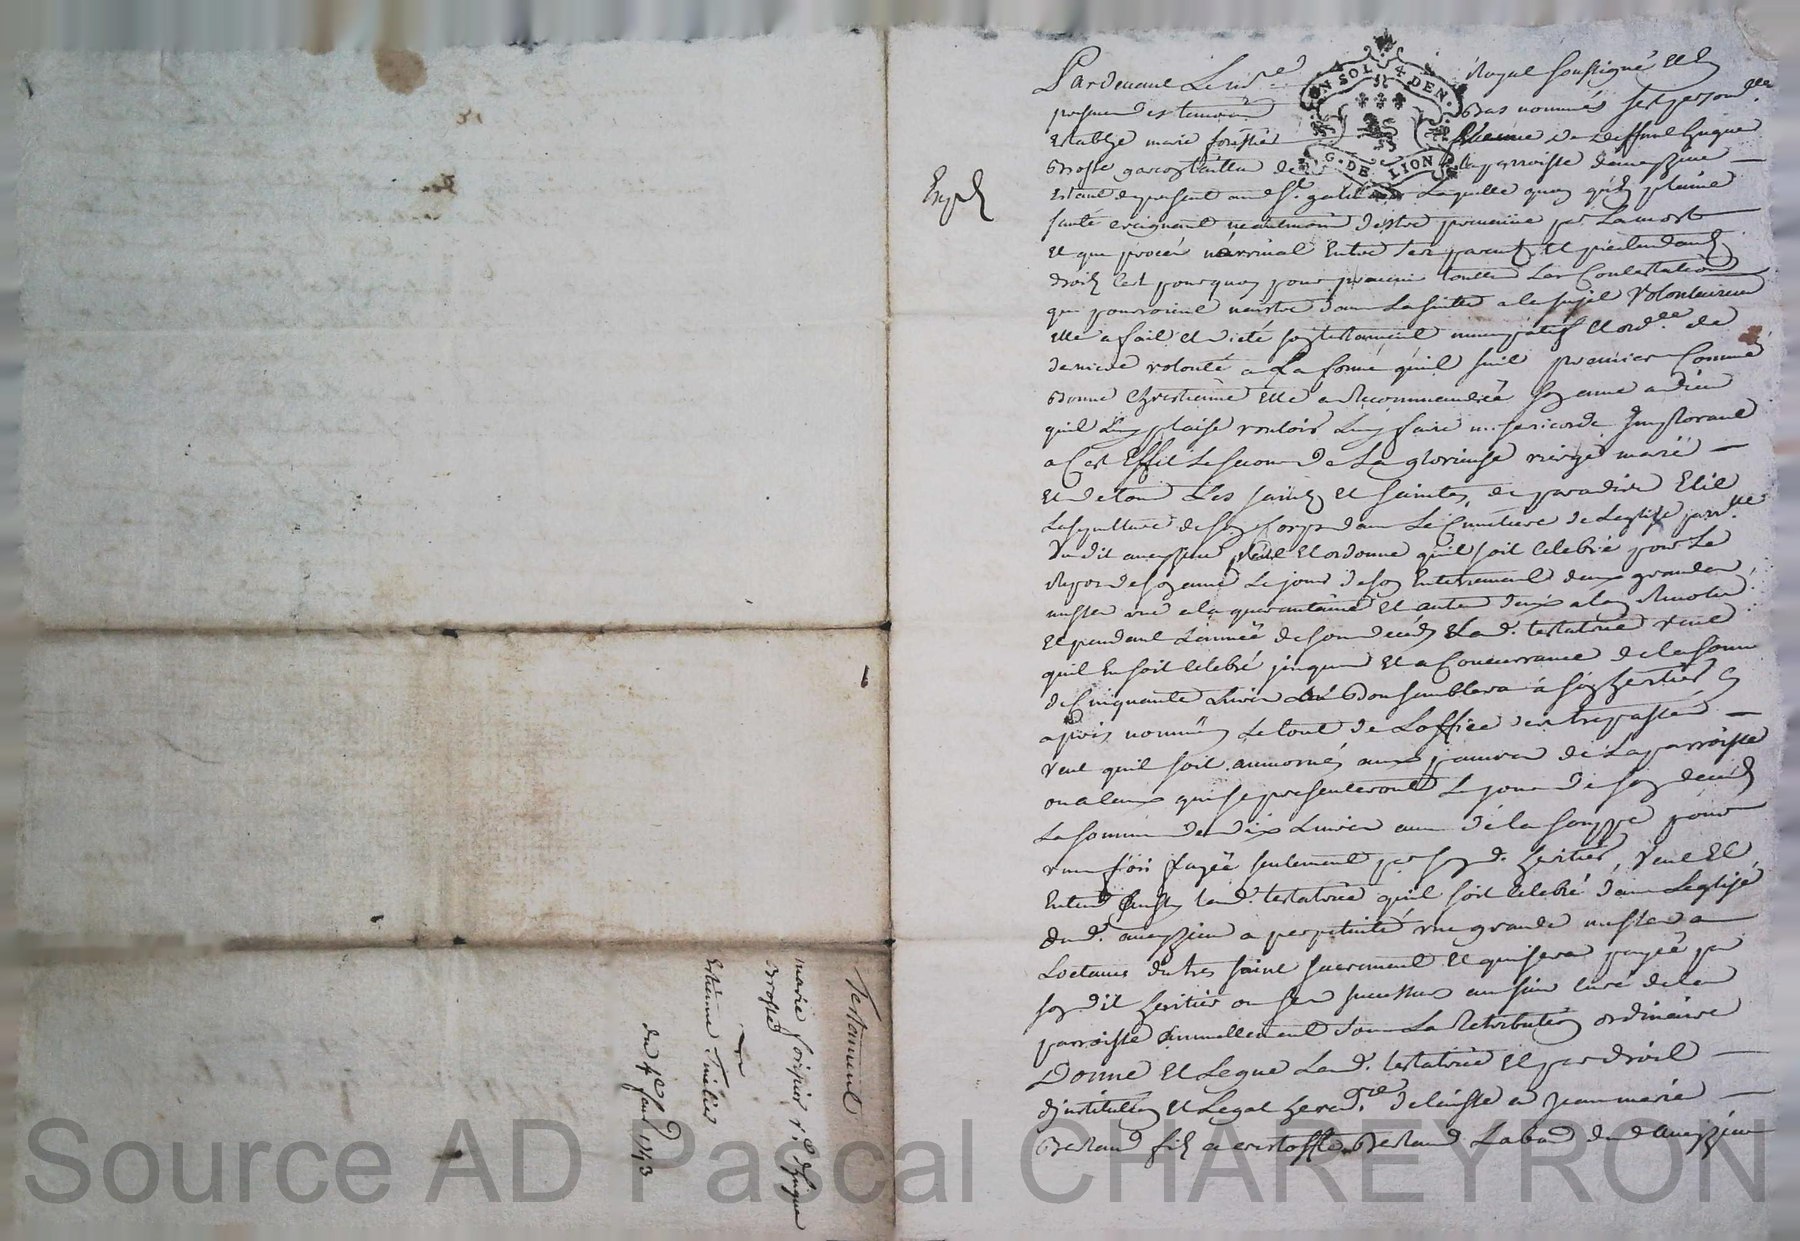 Testament
marie forisier v.e d'hugue
Brosse
Estienne Tuilier
du 4e Janv 1743
Expd
UN SOL 4 DEN.
G. DE LION
Pardevant Le no.re Royal soussigné Et En
presence des temoins Bas nommés fut personn.lle
Establye marie forisier veuve de deffunt hugue
Brosse de la parroisse d'aveyzieu
Estant de present a St. galmier Laquelle quoy qu'en pleine
santé craignant neantmoins d'estre prevenüe par La mort
Et que procès n'arrivat Entre ses parents Et pretendants
droit c'est pourquoy pour prevenir touttes Les Contestations
qui pourroient naistre dans La suitte a ce sujet Volontairement
elle a fait et dicté son testament nuncupatif et ord.ce de
derniere volonté a La forme qu'il suit premier Comme
Bonne Chrestienne Elle a Recommandée son ame a dieu
qu'il Luy plaise vouloir Luy faire misericorde Implorant
a Cet Effet Le secours de La glorieuse vierge marie
Et de tous Les saints Et saintes de paradis Elit
La sepulture de son Corps dans Le Cimetiere de L'eglise parr.lle
dudit aveyzieu veut Et ordonne qu'il soit Celebré pour Le
Repos de son ame Le jour de son Enterrement deux grandes
messes une a la quarantaine Et autres deux a la Revolue
Et pendant L'année de son decès La d. testatrice veut
qu'il En soit Celebré jusques Et a Concurrance de la somme
de Cinquante Livres Bon semblera a son heritier Cy
après nommé Le tout de L'office des trepassés
Veut qu'il soit aumosné aux pauvres de La parroisse
ou a Ceux qui se presenteront Le jour de son decès
La somme de dix Livres avec de la souppe pour
une fois payée seulement par son d. heritier, Veut Et
Entend Aussy La d. testatrice qu'il soit Celebré dans L'eglise
du d. aveyzieu a perpetuité une grande messe a
L'octave du tres saint sacrement Et qui sera payée par
son dit heritier ou ses successeurs au sieur Curé de La
parroisse Annuellement sous La Retribution ordinaire
Donne Et Legue La d. testatrice Et par droit
d'institution Et Legat hered.re delaisse a Jean marie
Bertaud fils a cristoffle Bertaud dud. aveyzieu
Source AD Pascal CHAREYRON